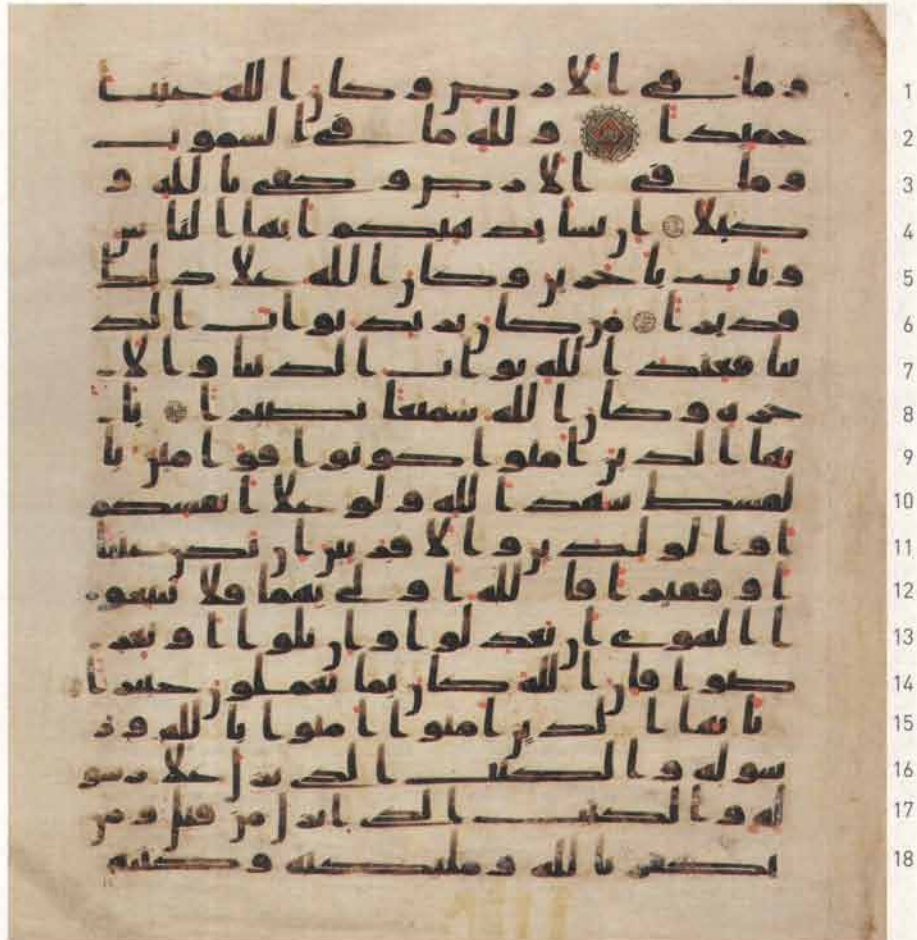 وما في الارض وكان الله غنيا 1
حميدا ولله ما في السموت 2
وما في الارض وكفى بالله و 3
كيلا ان يشا يذهبكم ايها الناس 4
ويات باخرين وكان الله على ذلك 5
قديرا من كان يريد ثواب الد 6
نيا فعند الله ثواب الدنيا والا 7
خرة وكان الله سميعا بصيرا يا 8
يها الذين امنوا كونوا قوامين با 9
لقسط شهدا لله ولو على انفسكم 10
او الولدين والاقربين ان يكن غنيا 11
او فقيرا فالله اولى بهما فلا تتبعو 12
ا الهوى ان تعدلوا وان تلوا او تعر 13
ضوا فان الله كان بما تعملون خبيرا 14
يايها الذين امنوا امنوا بالله ور 15
سوله والكتب الذي نزل على رسو 16
له والكتب الذي انزل من قبل ومن 17
يكفر بالله وملئكته وكتبه 18